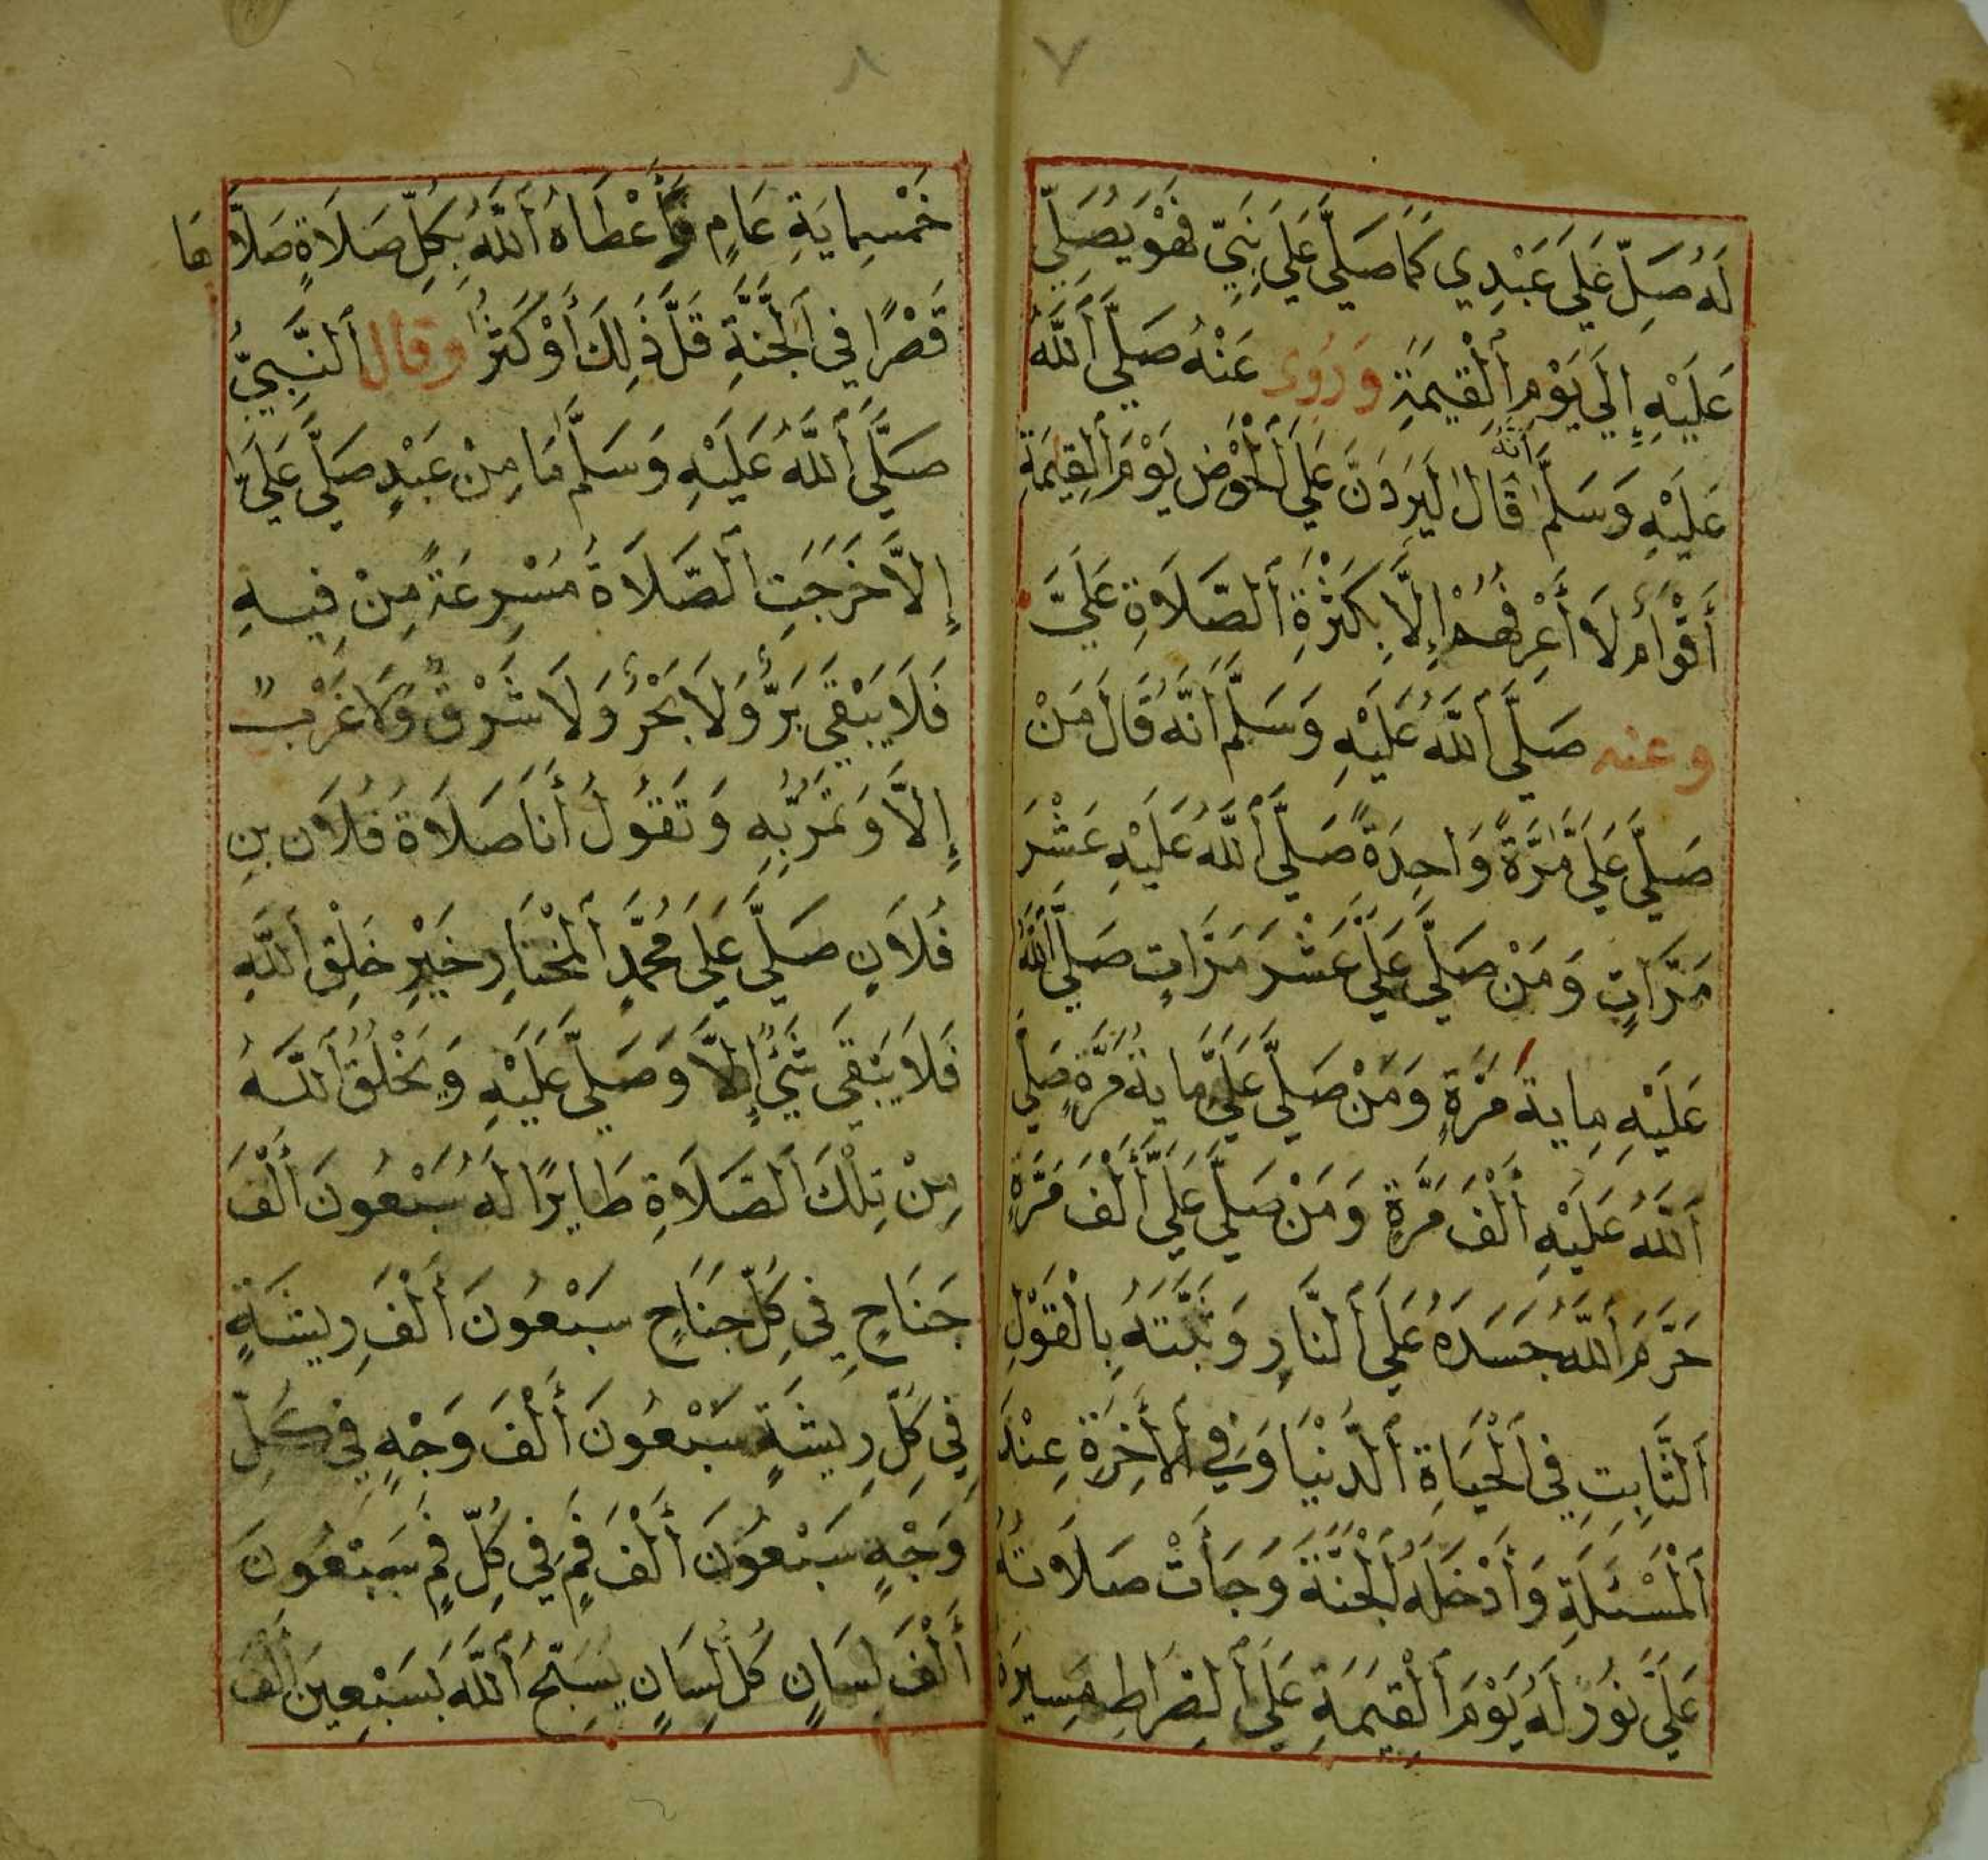 ٧
لَهُ صَلِّ عَلَى عَبْدِي كَمَا صَلَّى عَلَى نَبِيِّ فَهْوَ يُصَلِّي
عَلَيْهِ إِلَى يَوْمِ الْقِيمَةِ وَرُوِى عَنْهُ صَلَّى اللَّهُ
عَلَيْهِ وَسَلَّمَ أَنَّهُ قَالَ لَيَرِدَنَّ عَلَى الْحَوْضِ يَوْمَ الْقِيمَةِ
أَقْوَامٌ لَا أَعْرِفُهُمْ إِلَّا بِكَثْرَةِ الصَّلَاةِ عَلَيَّ
وعنه صَلَّى اللَّهُ عَلَيْهِ وَسَلَّمَ أَنَّهُ قَالَ مَنْ
صَلَّى عَلَيَّ مَرَّةً وَاحِدَةً صَلَّى اللَّهُ عَلَيْهِ عَشْرَ
مَرَّاتٍ وَمَنْ صَلَّى عَلَيَّ عَشْرَ مَرَّاتٍ صَلَّى اللَّهُ
عَلَيْهِ مِايةَ مَرَّةٍ وَمَنْ صَلَّى عَلَيَّ مِايةَ مَرَّةٍ صَلَّى
اللَّهُ عَلَيْهِ أَلْفَ مَرَّةٍ وَمَنْ صَلَّى عَلَيَّ أَلْفَ مَرَّةٍ
حَرَّمَ اللَّهُ جَسَدَهُ عَلَى النَّارِ وَثَبَّتَهُ بِالْقَوْلِ
الثَّابِتِ فِي الْحَيَاةِ الدُّنْيَا وَفِي الْأَخِرَةِ عِنْدَ
الْمَسْئَلَةِ وَأَدْخَلَهُ الْجَنَّةَ وَجَأَتْ صَلَاتُهُ
عَلَيَّ نُورٌ لَهُ يَوْمَ الْقِيَمَةِ عَلَى الصِّرَاطِ مَسِيرَةَ
٨
خَمْسِمِايَةِ عَامٍ وَأَعْطَاهُ اللَّهُ بِكُلِّ صَلَاةٍ صَلَّاهَا
قَصْرًا فِي الْجَنَّةِ قَلَّ ذَلِكَ أَوْ كَثُرَ وقال النَّبِيُّ
صَلَّى اللَّهُ عَلَيْهِ وَسَلَّمَ مَا مِنْ عَبْدٍ صَلَّى عَلَيَّ
إِلَّا خَرَجَتِ الصَّلَاةُ مُسْرِعَةً مِنْ فِيهِ
فَلَا يَبْقَى بَرٌّ وَلَا بَحْرٌ وَلَا شَرْقٌ وَلَا غَرْبٌ
إِلَّا وَتَمُرُّ بِهِ وَتَقُولُ أَنَا صَلَاةُ فُلَانِ بنِ
فُلَانٍ صَلَّى عَلَى مُحَمَّدٍ الْمُخْتَارِ خَيْرِ خَلْقِ اللَّهِ
فَلَا يَبْقَى شَيْءٌ إِلَّا وَصَلَّى عَلَيْهِ وَيَخْلُقُ اللَّهُ
مِنْ تِلْكَ الصَّلَاةِ طَايرًا لَهُ سَبْعُونَ أَلْفَ
جَنَاحٍ فِي كُلِّ جَنَاحٍ سَبْعُونَ أَلْفَ رِيشَةٍ
فِي كُلِّ رِيشَةٍ سَبْعُونَ أَلْفَ وَجْهٍ فِي كُلِّ
وَجْهٍ سَبْعُونَ أَلْفَ فَمٍ فِي كُلِّ فَمٍ سَبْعُونَ
أَلْفَ لِسَانٍ كُلُّ لِسَانٍ يُسَبِّحُ اللَّهَ بِسَبْعِينَ أَلْفَ